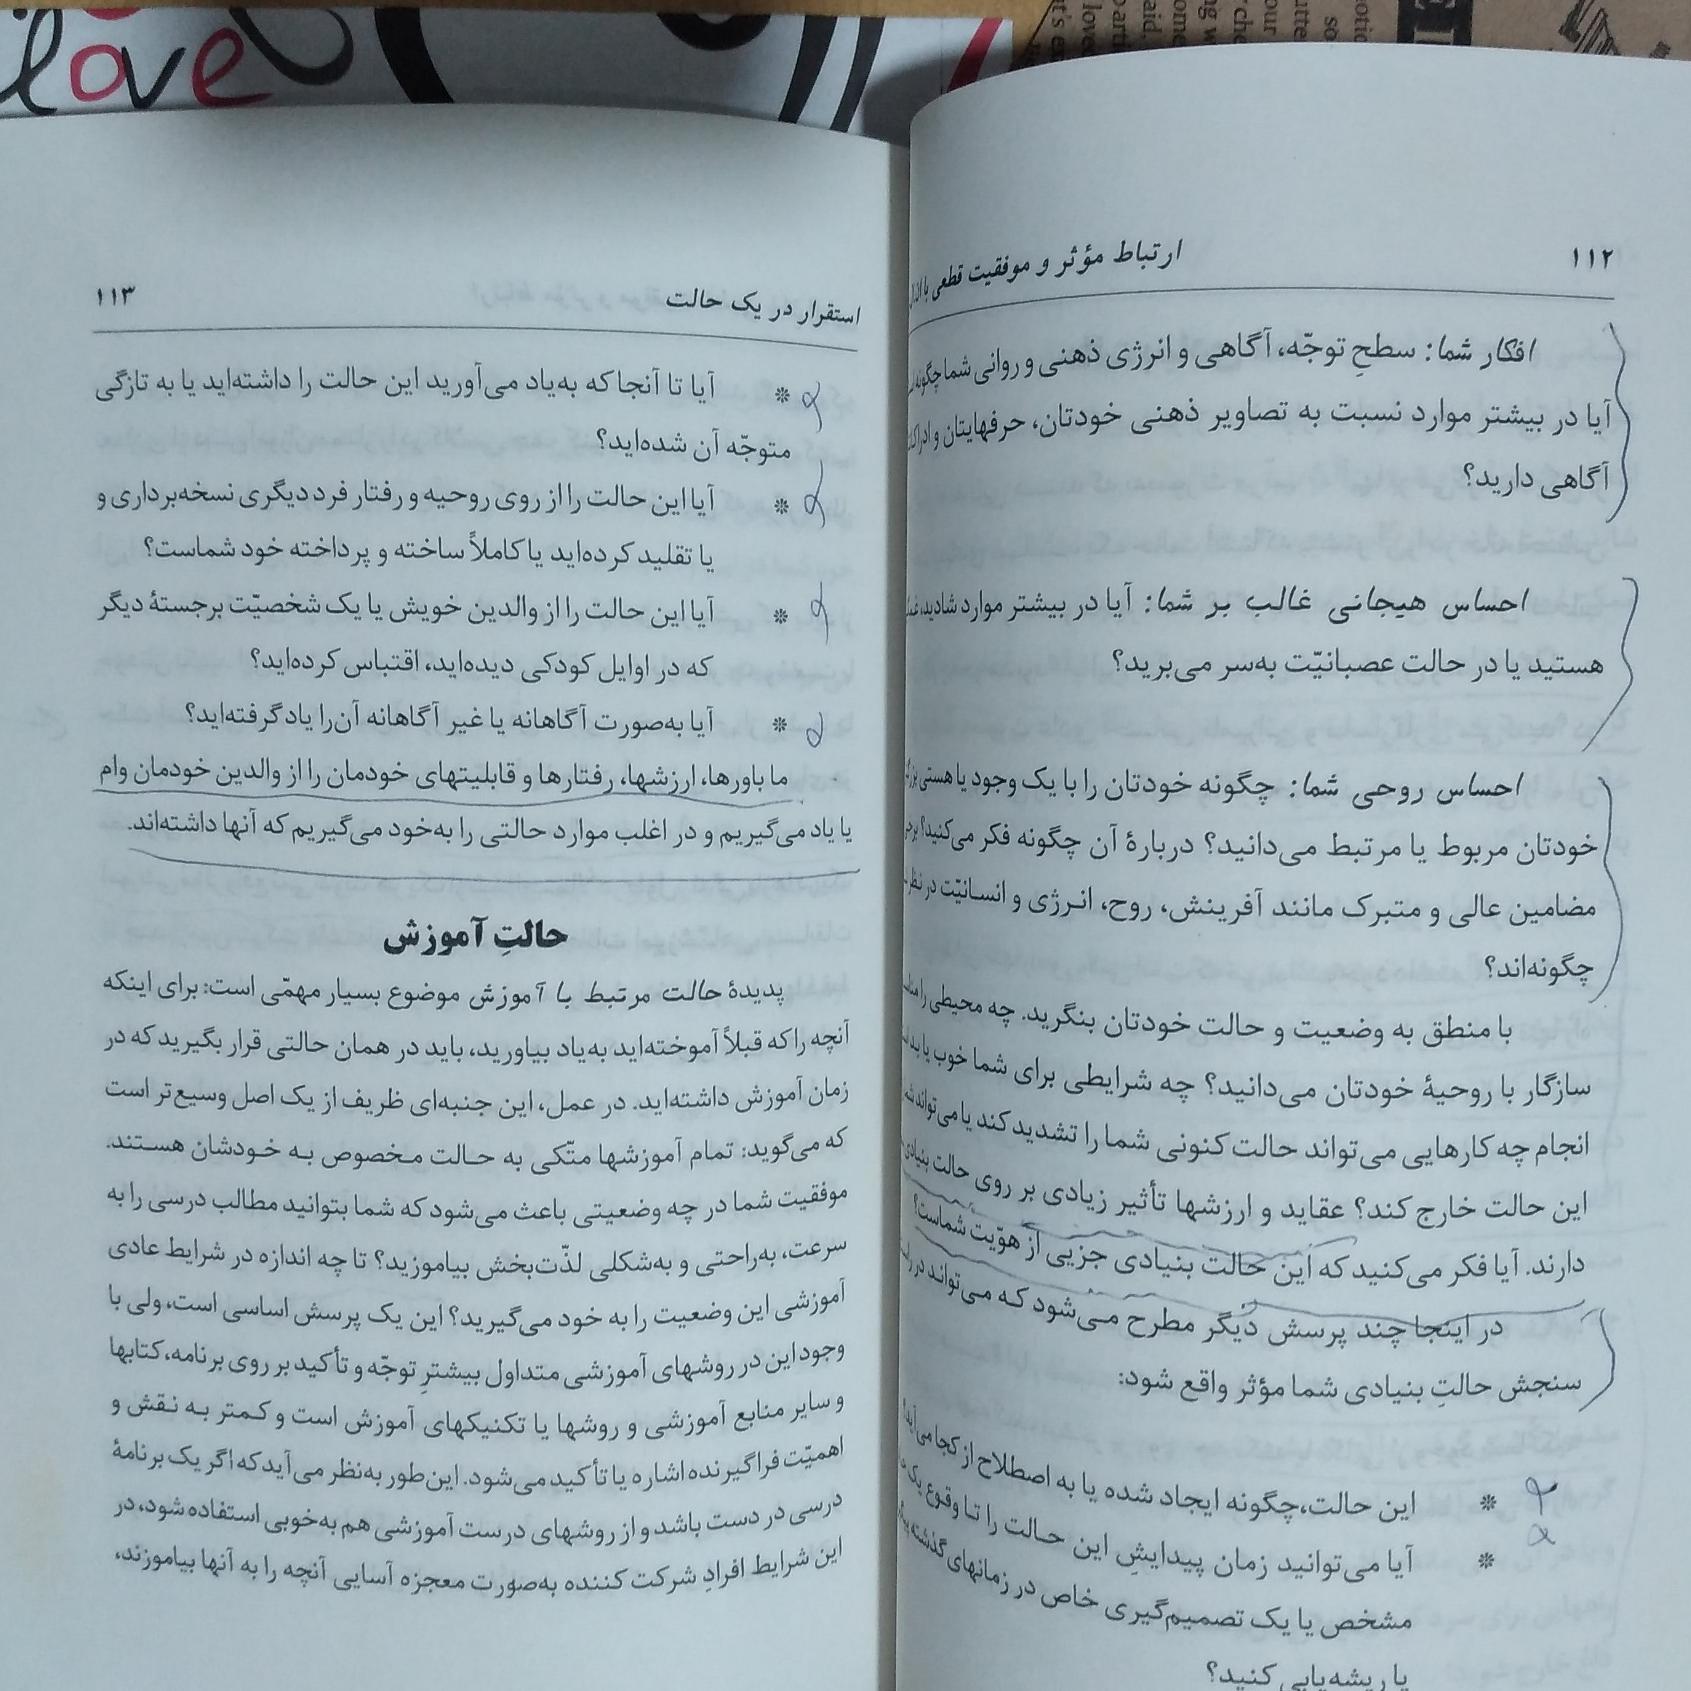 love
۱۱۲
ارتباط مؤثر و موفقیت قطعی با
افکار شما: سطحِ توجّه، آگاهی و انرژی ذهنی و روانی شما چگونه
آیا در بیشتر موارد نسبت به تصاویر ذهنی خودتان، حرفهایتان و
آگاهی دارید؟
احساس هیجانی غالب بر شما: آیا در بیشتر موارد شادید،
هستید یا در حالت عصبانیّت به‌سر می‌برید؟
احساس روحی شما: چگونه خودتان را با یک وجود یا هستی
خودتان مربوط یا مرتبط می‌دانید؟ دربارهٔ آن چگونه فکر می‌کنید؟
مضامین عالی و متبرک مانند آفرینش، روح، انرژی و انسانیّت در نظر
چگونه‌اند؟
با منطق به وضعیت و حالت خودتان بنگرید. چه محیطی را
سازگار با روحیهٔ خودتان می‌دانید؟ چه شرایطی برای شما خوب یا
انجام چه کارهایی می‌تواند حالت کنونی شما را تشدید کند یا می‌تواند
این حالت خارج کند؟ عقاید و ارزشها تأثیر زیادی بر روی حالت
دارند. آیا فکر می‌کنید که این حالت بنیادی جزیی از هوّیت شماست؟
در اینجا چند پرسش دیگر مطرح می‌شود که می‌تواند در
سنجش حالتِ بنیادی شما مؤثر واقع شود:
* این حالت، چگونه ایجاد شده یا به اصطلاح از کجا می‌آید؟
* آیا می‌توانید زمان پیدایشِ این حالت را تا وقوع یک
مشخص یا یک تصمیم‌گیری خاص در زمانهای گذشته
یا ریشه‌یابی کنید؟
استقرار در یک حالت
۱۱۳
* آیا تا آنجا که به‌یاد می‌آورید این حالت را داشته‌اید یا به تازگی
متوجّه آن شده‌اید؟
* آیا این حالت را از روی روحیه و رفتار فرد دیگری نسخه‌برداری و
یا تقلید کرده‌اید یا کاملاً ساخته و پرداخته خود شماست؟
* آیا این حالت را از والدین خویش یا یک شخصیّت برجستهٔ دیگر
که در اوایل کودکی دیده‌اید، اقتباس کرده‌اید؟
* آیا به‌صورت آگاهانه یا غیر آگاهانه آن‌را یاد گرفته‌اید؟
ما باورها، ارزشها، رفتارها و قابلیتهای خودمان را از والدین خودمان وام
یا یاد می‌گیریم و در اغلب موارد حالتی را به‌خود می‌گیریم که آنها داشته‌اند.
حالتِ آموزش
پدیدهٔ حالت مرتبط با آموزش موضوع بسیار مهمّی است: برای اینکه
آنچه را که قبلاً آموخته‌اید به‌یاد بیاورید، باید در همان حالتی قرار بگیرید که در
زمان آموزش داشته‌اید. در عمل، این جنبه‌ای ظریف از یک اصل وسیع‌تر است
که می‌گوید: تمام آموزشها متّکی به حالت مخصوص به خودشان هستند.
موفقیت شما در چه وضعیتی باعث می‌شود که شما بتوانید مطالب درسی را به
سرعت، به‌راحتی و به‌شکلی لذّت‌بخش بیاموزید؟ تا چه اندازه در شرایط عادی
آموزشی این وضعیت را به خود می‌گیرید؟ این یک پرسش اساسی است، ولی با
وجود این در روشهای آموزشی متداول بیشترِ توجّه و تأکید بر روی برنامه، کتابها
و سایر منابع آموزشی و روشها یا تکنیکهای آموزش است و کمتر به نقش و
اهمیّت فراگیرنده اشاره یا تأکید می‌شود. این‌طور به‌نظر می‌آید که اگر یک برنامهٔ
درسی در دست باشد و از روشهای درست آموزشی هم به‌خوبی استفاده شود، در
این شرایط افرادِ شرکت کننده به‌صورت معجزه آسایی آنچه را به آنها بیاموزند،